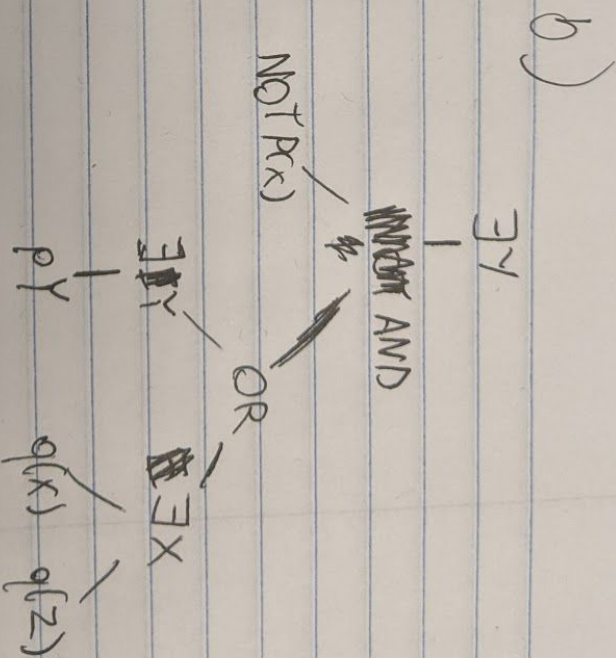 b)
∃Y
AND
NOT P(x) OR
∃Y ∃X
PY q(x) q(z)